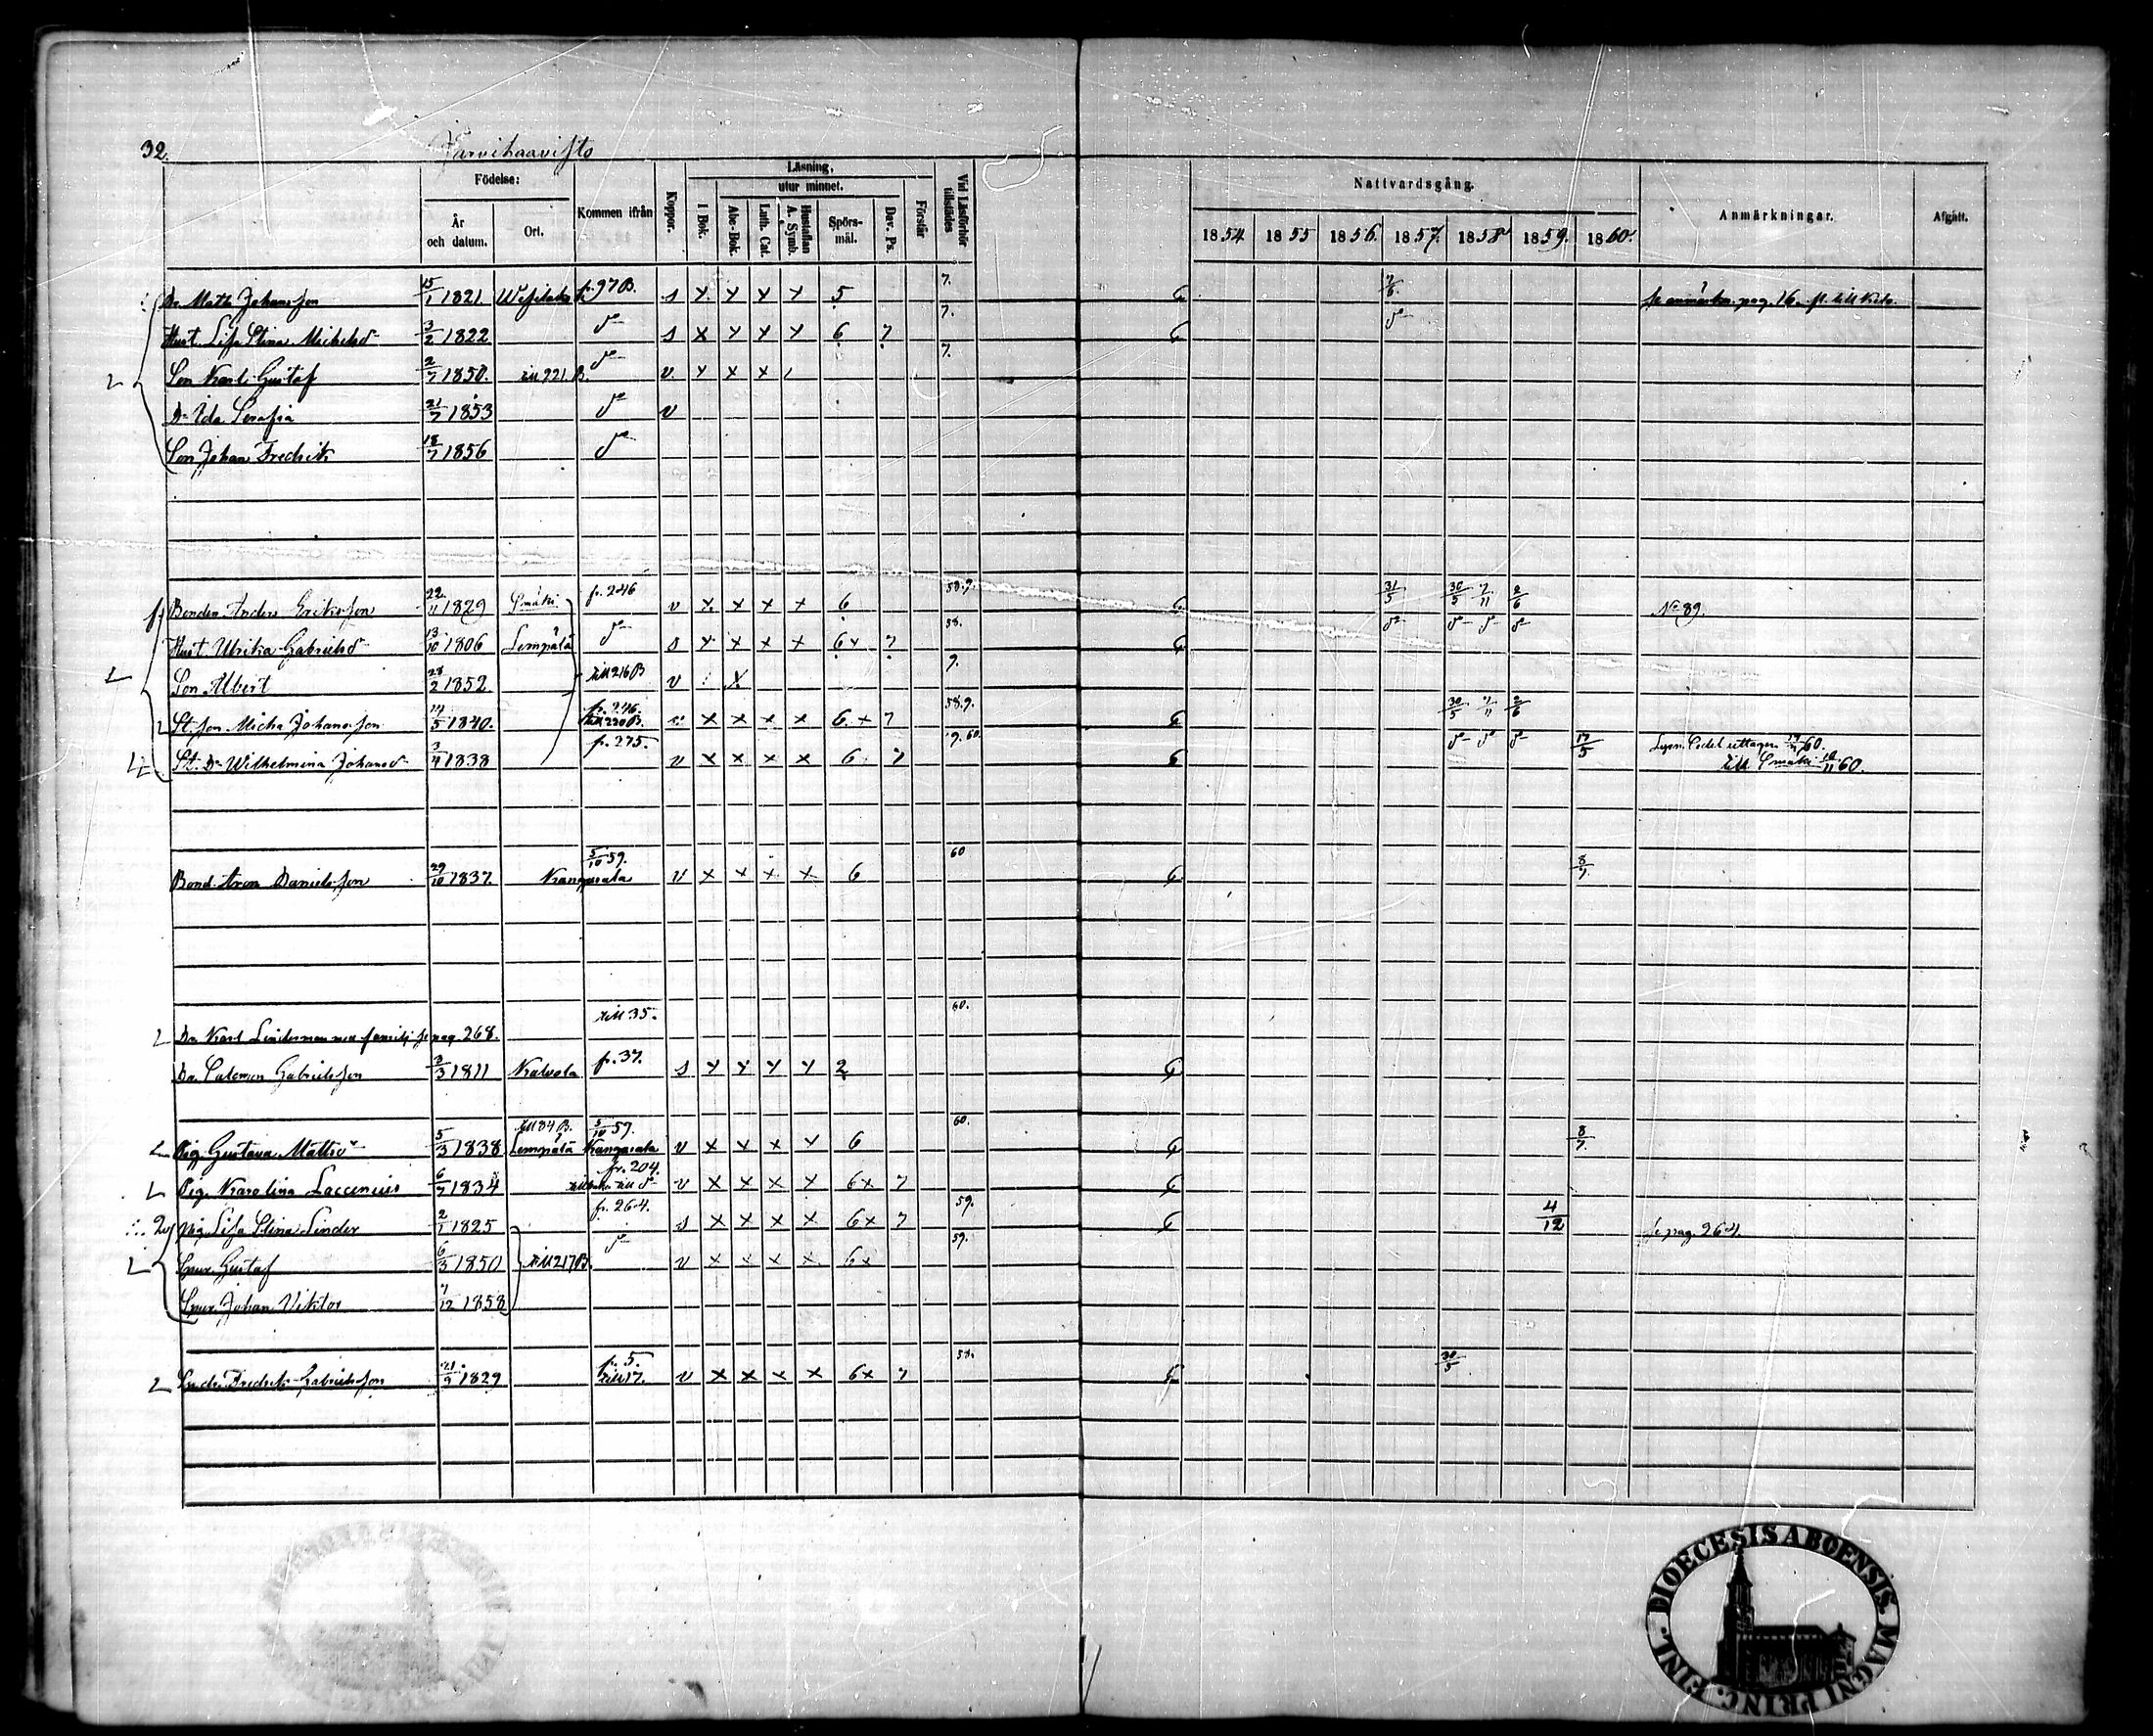 32.
Järvihaavisto
Födelse:
År och datum.
Ort.
Kommen ifrån
Koppor.
Läsning,
utur minnet.
I Bok.
Abc-Bok.
Luth. Cat.
Hustaflan A. Symb.
Spörsmål.
Dav. Ps.
Förstår
Vid Läsförhör tillstädes
Nattvardsgång.
1854 1855 1856. 1857. 1858 1859. 1860.
Anmärkningar.
Afgått.
Dr. Matts Johansson 15/1 1821. fr. 97 B. s x x x x 5 7. pag. 16
Hust. Lisa Stina Michelsdr 3/2 1822 do s x x x x 6 7 7. do
Son Karl Gustaf 2/7 1850. till 221 B. do v. x x x / 7.
Dr Ida Serafia 21/7 1853 do v
Son Johan Fredrik 18/7 1856 do
Bonden Anders Eriksson 22/11 1829 Småki fr. 246 v x x x x 6 58.9. 31/5 30/5 7/11 2/6 No 89.
Hust. Ulrika Gabrielsd 13/10 1806 Lempälä do s x x x x 6x 7 58. do do do do
Son Albert 28/2 1852. till 216 B v x 9.
St. son Micha Johansson 14/5 1840. fr. 246. till 220 B. v x x x x 6. x 7 58.9. 30/5 7/11 2/6
St. Dr Wilhelmina Johansd 3/4 1838 fr. 275. v x x x x 6 7 9.60. do do do 17/5 60.
till Småki 60.
Bond. Aron Danielsson 29/10 1837 5/10 59. Kangasala v x x x x 6 60 8/7
Dr. Karl Linderman med familj se pag. 268. till 35. 60.
Dr. Salomon Gabrielsson 3/3 1811 Kalvola fr. 37. s x x x x 2
Pig. Gustava Mattsdr 5/3 1838 till 84 B. Lempälä 5/10 59. Kangasala v x x x x 6 60. 8/7.
Pig. Karolina Laccenius 6/7 1834 fr. 204. till do v x x x x 6x 7
Pig. Lisa Stina Linder 2/1 1825 fr. 264. s x x x x 6x 7 59. 4/12 se pag. 264.
Spur. Gustaf 6/3 1850 till 217 B. do v x x x x 6x 59.
Spur. Johan Viktor 7/12 1858
Fredrik Gabrielsson 21/9 1829 fr. 5. till 17. v x x x x 6x 7 58. 30/5
DIOECESIS ABOENSIS. MAGNI PRINC. FINL.